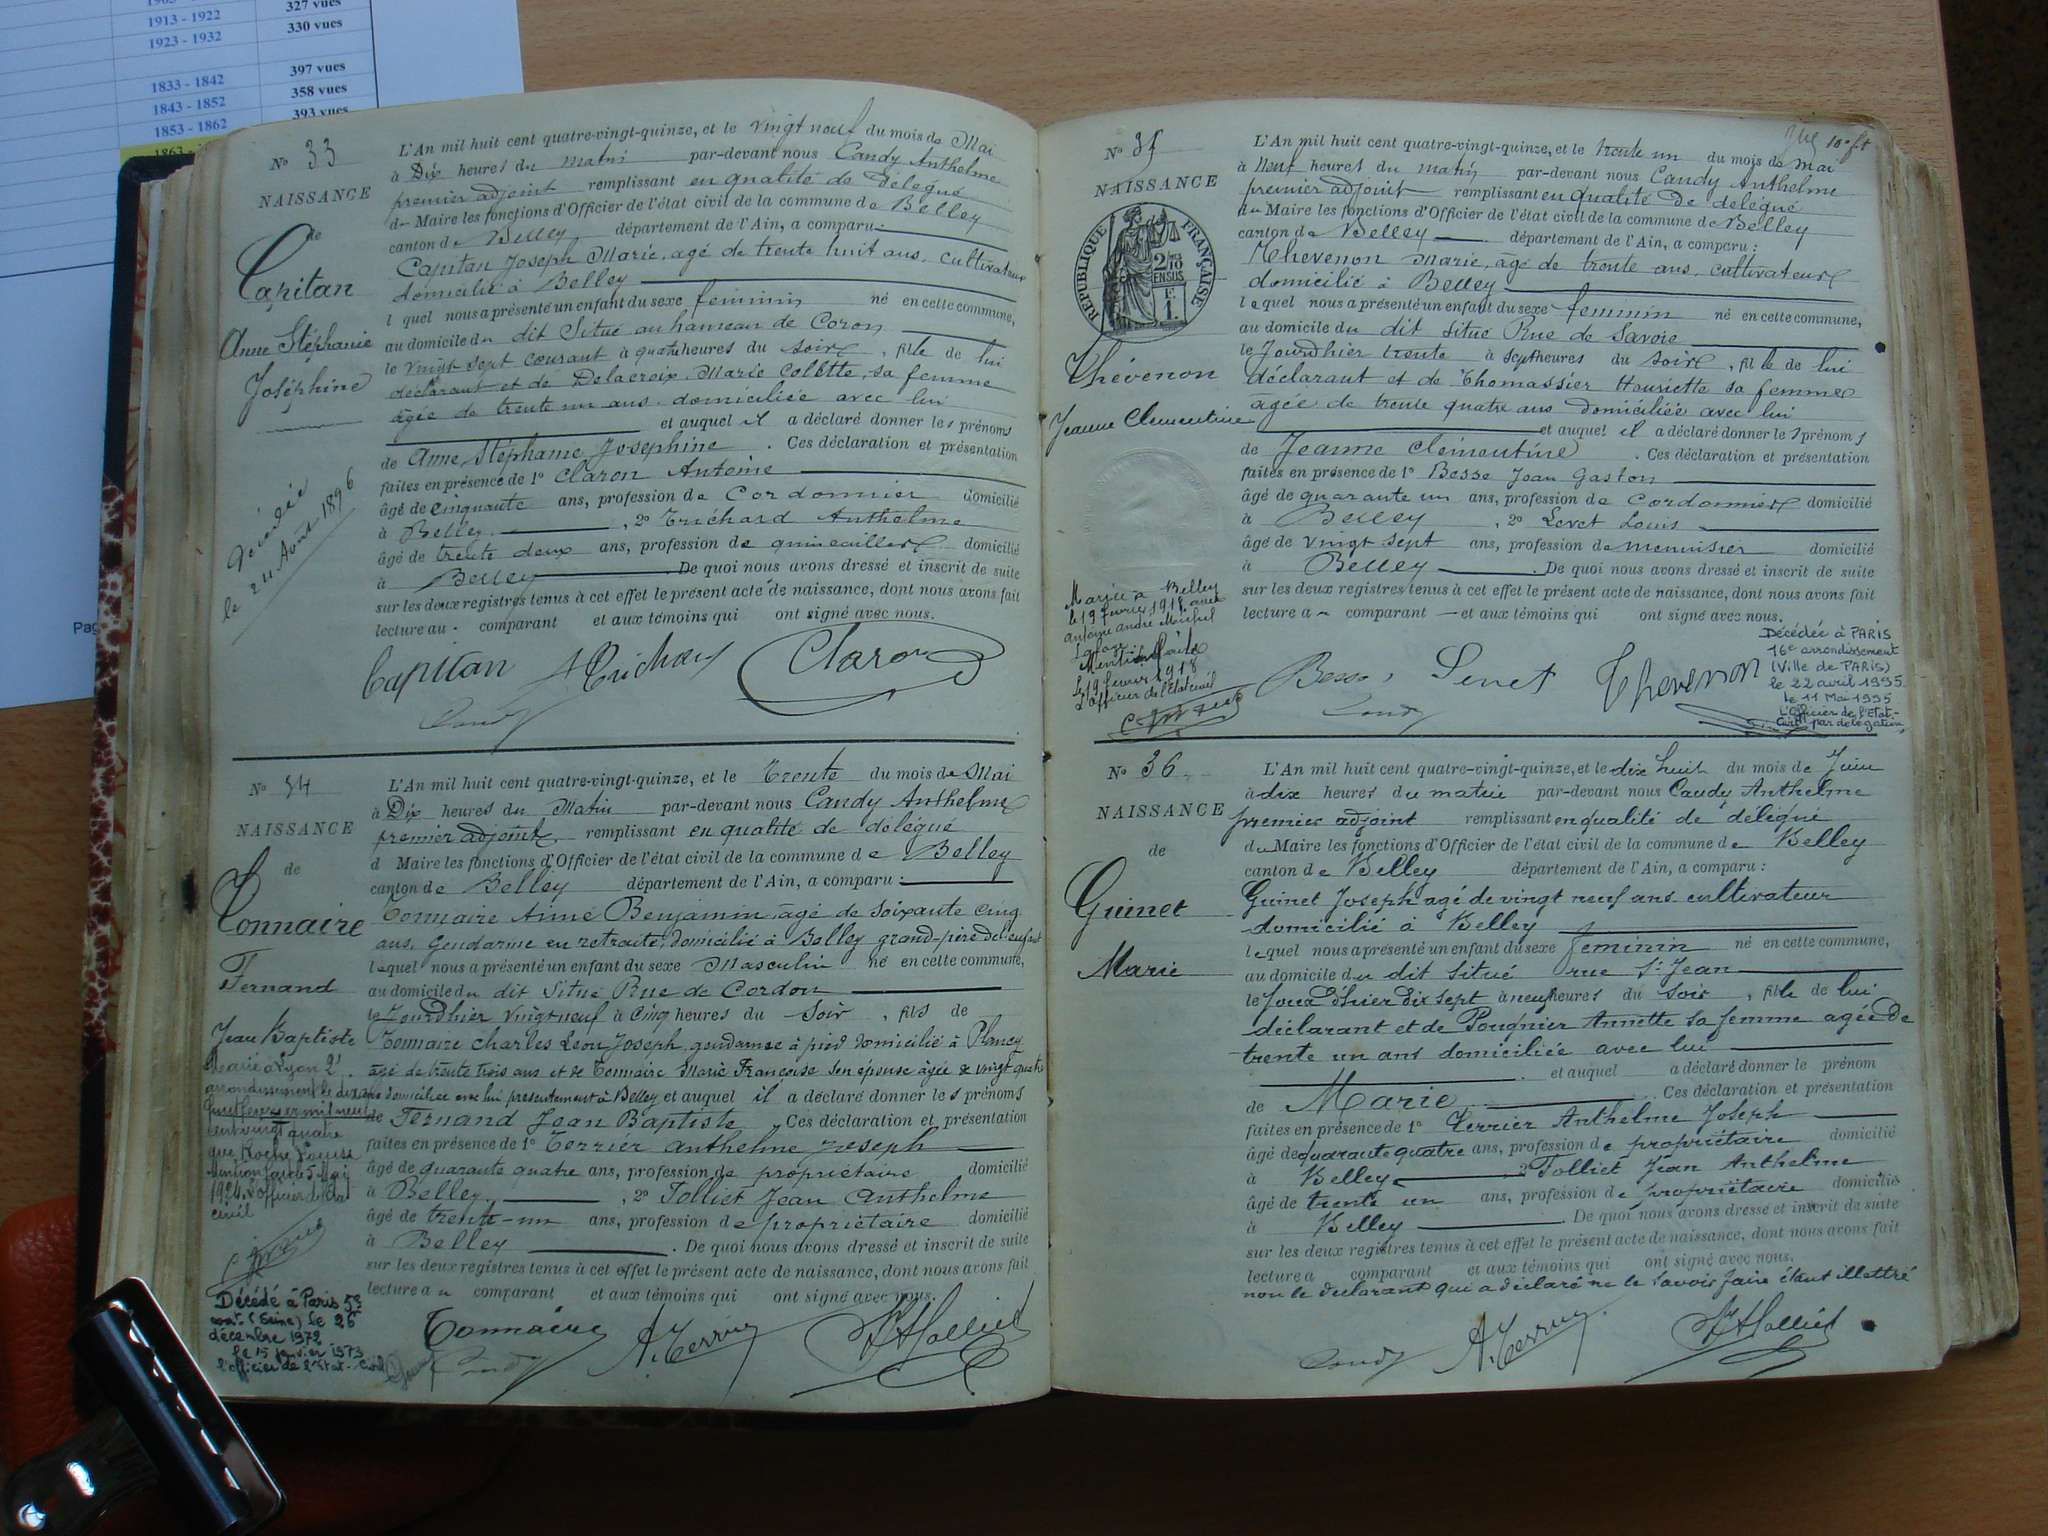 327 vues
1913 - 1922
330 vues
1923 - 1932
1833 - 1842
397 vues
1843 - 1852
358 vues
1853 - 1862
393 vues
N° 33
NAISSANCE
de
Capitan
Anne Stéphanie
Joséphine
Décédée
le 24 Août 1896
L'An mil huit cent quatre-vingt-quinze, et le vingt neuf du mois de Mai
à Dix heures du matin par-devant nous Candy Anthelme
premier adjoint remplissant en qualité de délégué
du Maire les fonctions d'Officier de l'état civil de la commune de Belley
canton de Belley département de l'Ain, a comparu :
Capitan Joseph Marie, agé de trente huit ans, cultivateur
domicilié à Belley
l quel nous a présenté un enfant du sexe feminin né en cette commune,
au domicile du dit Situé au hameau de Coron
le vingt sept courant à quatre heures du soir, fille de lui
déclarant et de Delacroix Marie Colette, sa femme
agée de trente un ans domiciliée avec lui
et auquel il a déclaré donner les prénoms
de Anne Stéphanie Josephine . Ces déclaration et présentation
faites en présence de 1° Claron Antoine
âgé de cinquante ans, profession de Cordonnier domicilié
à Belley , 2° Trichard Anthelme
âgé de trente deux ans, profession de quincailler domicilié
à Belley . De quoi nous avons dressé et inscrit de suite
sur les deux registres tenus à cet effet le présent acte de naissance, dont nous avons fait
lecture au comparant et aux témoins qui ont signé avec nous.
Capitan Trichard Claron
Candy
N° 34
NAISSANCE
de
Tonnaire
Fernand
Jean Baptiste
Marié à Lyon 2e
arrondissement le dix
cent vingt quatre
Roche Louise
Mention faite 5 Mai
1924 L'officier de l'état
civil
Décédé à Paris 5e
arrt (Seine) le 26
décembre 1972
le 15 janvier 1973
l'officier de l'Etat-Civil
L'An mil huit cent quatre-vingt-quinze, et le Trente du mois de Mai
à Dix heures du Matin par-devant nous Candy Anthelme
premier adjoint remplissant en qualité de délégué
d Maire les fonctions d'Officier de l'état civil de la commune de Belley
canton de Belley département de l'Ain, a comparu :
Tonnaire Aimé Benjamin, agé de Soixante cinq
ans, Gendarme en retraite, domicilié à Belley grand-père de l'enfant
lequel nous a présenté un enfant du sexe Masculin né en cette commune,
au domicile du dit Situé Rue de Cordon
le Jourdhier vingt neuf à Cinq heures du Soir, fils de
Tonnaire Charles Léon Joseph, gendarme à pied domicilié à Plancy
agé de trente trois ans et de Tonnaire Marie Françoise son épouse agée de vingt quatre
ans domiciliée avec lui présentement à Belley et auquel il a déclaré donner les prénoms
de Fernand Jean Baptiste . Ces déclaration et présentation
faites en présence de 1° Terrier Anthelme Joseph
âgé de quarante quatre ans, profession de propriétaire domicilié
à Belley , 2° Tolliet Jean Anthelme
âgé de trente-un ans, profession de propriétaire domicilié
à Belley . De quoi nous avons dressé et inscrit de suite
sur les deux registres tenus à cet effet le présent acte de naissance, dont nous avons fait
lecture au comparant et aux témoins qui ont signé avec nous.
Tonnaire A. Terrier JA Tolliet
Candy
N° 35
NAISSANCE
RÉPUBLIQUE FRANÇAISE
2/10
EN SUS
1 F.
Thévenon
Jeanne Clementine
Mariée à Belley
le 19 février 1918 avec
Antoine André Michel
Mention faite
le 19 fevrier 1918
L'officier de l'état civil
10 ft
L'An mil huit cent quatre-vingt-quinze, et le trente un du mois de mai
à Neuf heures du matin par-devant nous Candy Anthelme
premier adjoint remplissant en qualité de délégué
du Maire les fonctions d'Officier de l'état civil de la commune de Belley
canton de Belley département de l'Ain, a comparu :
Thevenon Marie, agé de trente ans, cultivateur
domicilié à Belley
lequel nous a présenté un enfant du sexe feminin né en cette commune,
au domicile du dit situé Rue de Savoie
le Jourdhier trente à sept heures du soir, fille de lui
déclarant et de Thomassier Henriette sa femme
agée de trente quatre ans domiciliée avec lui
et auquel il a déclaré donner les prénoms
de Jeanne Clémentine . Ces déclaration et présentation
faites en présence de 1° Besse Jean Gaston
âgé de quarante un ans, profession de cordonnier domicilié
à Belley , 2° Levet Louis
âgé de vingt sept ans, profession de menuisier domicilié
à Belley . De quoi nous avons dressé et inscrit de suite
sur les deux registres tenus à cet effet le présent acte de naissance, dont nous avons fait
lecture au comparant et aux témoins qui ont signé avec nous.
Besse Levet Thevenon
Candy
Décédée à PARIS
16e arrondissement
(Ville de PARIS)
le 22 avril 1995
le 11 Mai 1995
L'Officier de l'Etat-
Civil par délégation
N° 36
NAISSANCE
de
Guinet
Marie
L'An mil huit cent quatre-vingt-quinze, et le dix huit du mois de Juin
à dix heures du matin par-devant nous Candy Anthelme
premier adjoint remplissant en qualité de délégué
du Maire les fonctions d'Officier de l'état civil de la commune de Belley
canton de Belley département de l'Ain, a comparu :
Guinet Joseph agé de vingt neuf ans cultivateur
domicilié à Belley
lequel nous a présenté un enfant du sexe feminin né en cette commune,
au domicile du dit situé rue St Jean
le Jour d'hier dix sept à neuf heures du soir, fille de lui
déclarant et de Pougnier Annette sa femme agée de
trente un ans domiciliée avec lui
et auquel a déclaré donner le prénom
de Marie . Ces déclaration et présentation
faites en présence de 1° Terrier Anthelme Joseph
âgé de quarante quatre ans, profession de propriétaire domicilié
à Belley 2° Tolliet Jean Anthelme
âgé de trente un ans, profession de propriétaire domicilié
à Belley . De quoi nous avons dressé et inscrit de suite
sur les deux registres tenus à cet effet le présent acte de naissance, dont nous avons fait
lecture a comparant et aux témoins qui ont signé avec nous.
non le déclarant qui a déclaré ne le savoir faire étant illettré
Candy A. Terrier JA Tolliet